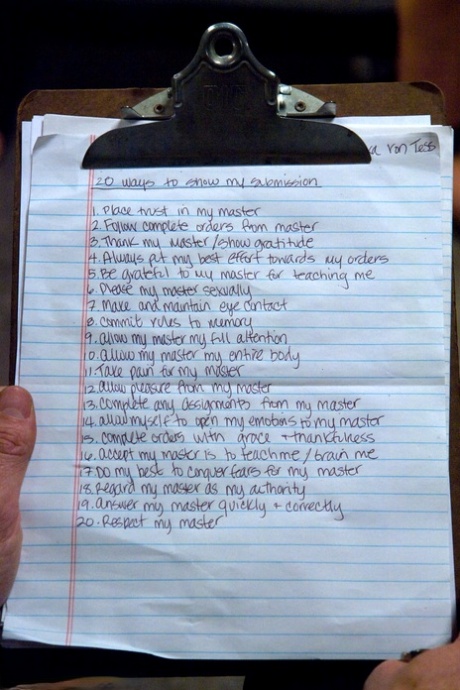 Von Tess
20 ways to show my submission
1. Place trust in my master
2. Follow complete orders from master
3. Thank my Master/show gratitude
4. Always put my best effort towards my orders
5. Be grateful to my master for teaching me
6. Please my master sexually
7. Make and maintain eye contact
8. commit rules to memory
9. allow my master my full attention
10. allow my master my entire body
11. Take pain for my master
12. allow pleasure from my master
13. complete any assignments from my master
14. allow myself to open my emotions to my master
15. complete orders with grace + thankfulness
16. Accept my master is to teach me / train me
17. Do my best to conquer fears for my master
18. Regard my master as my authority
19. Answer my master quickly + correctly
20. Respect my master